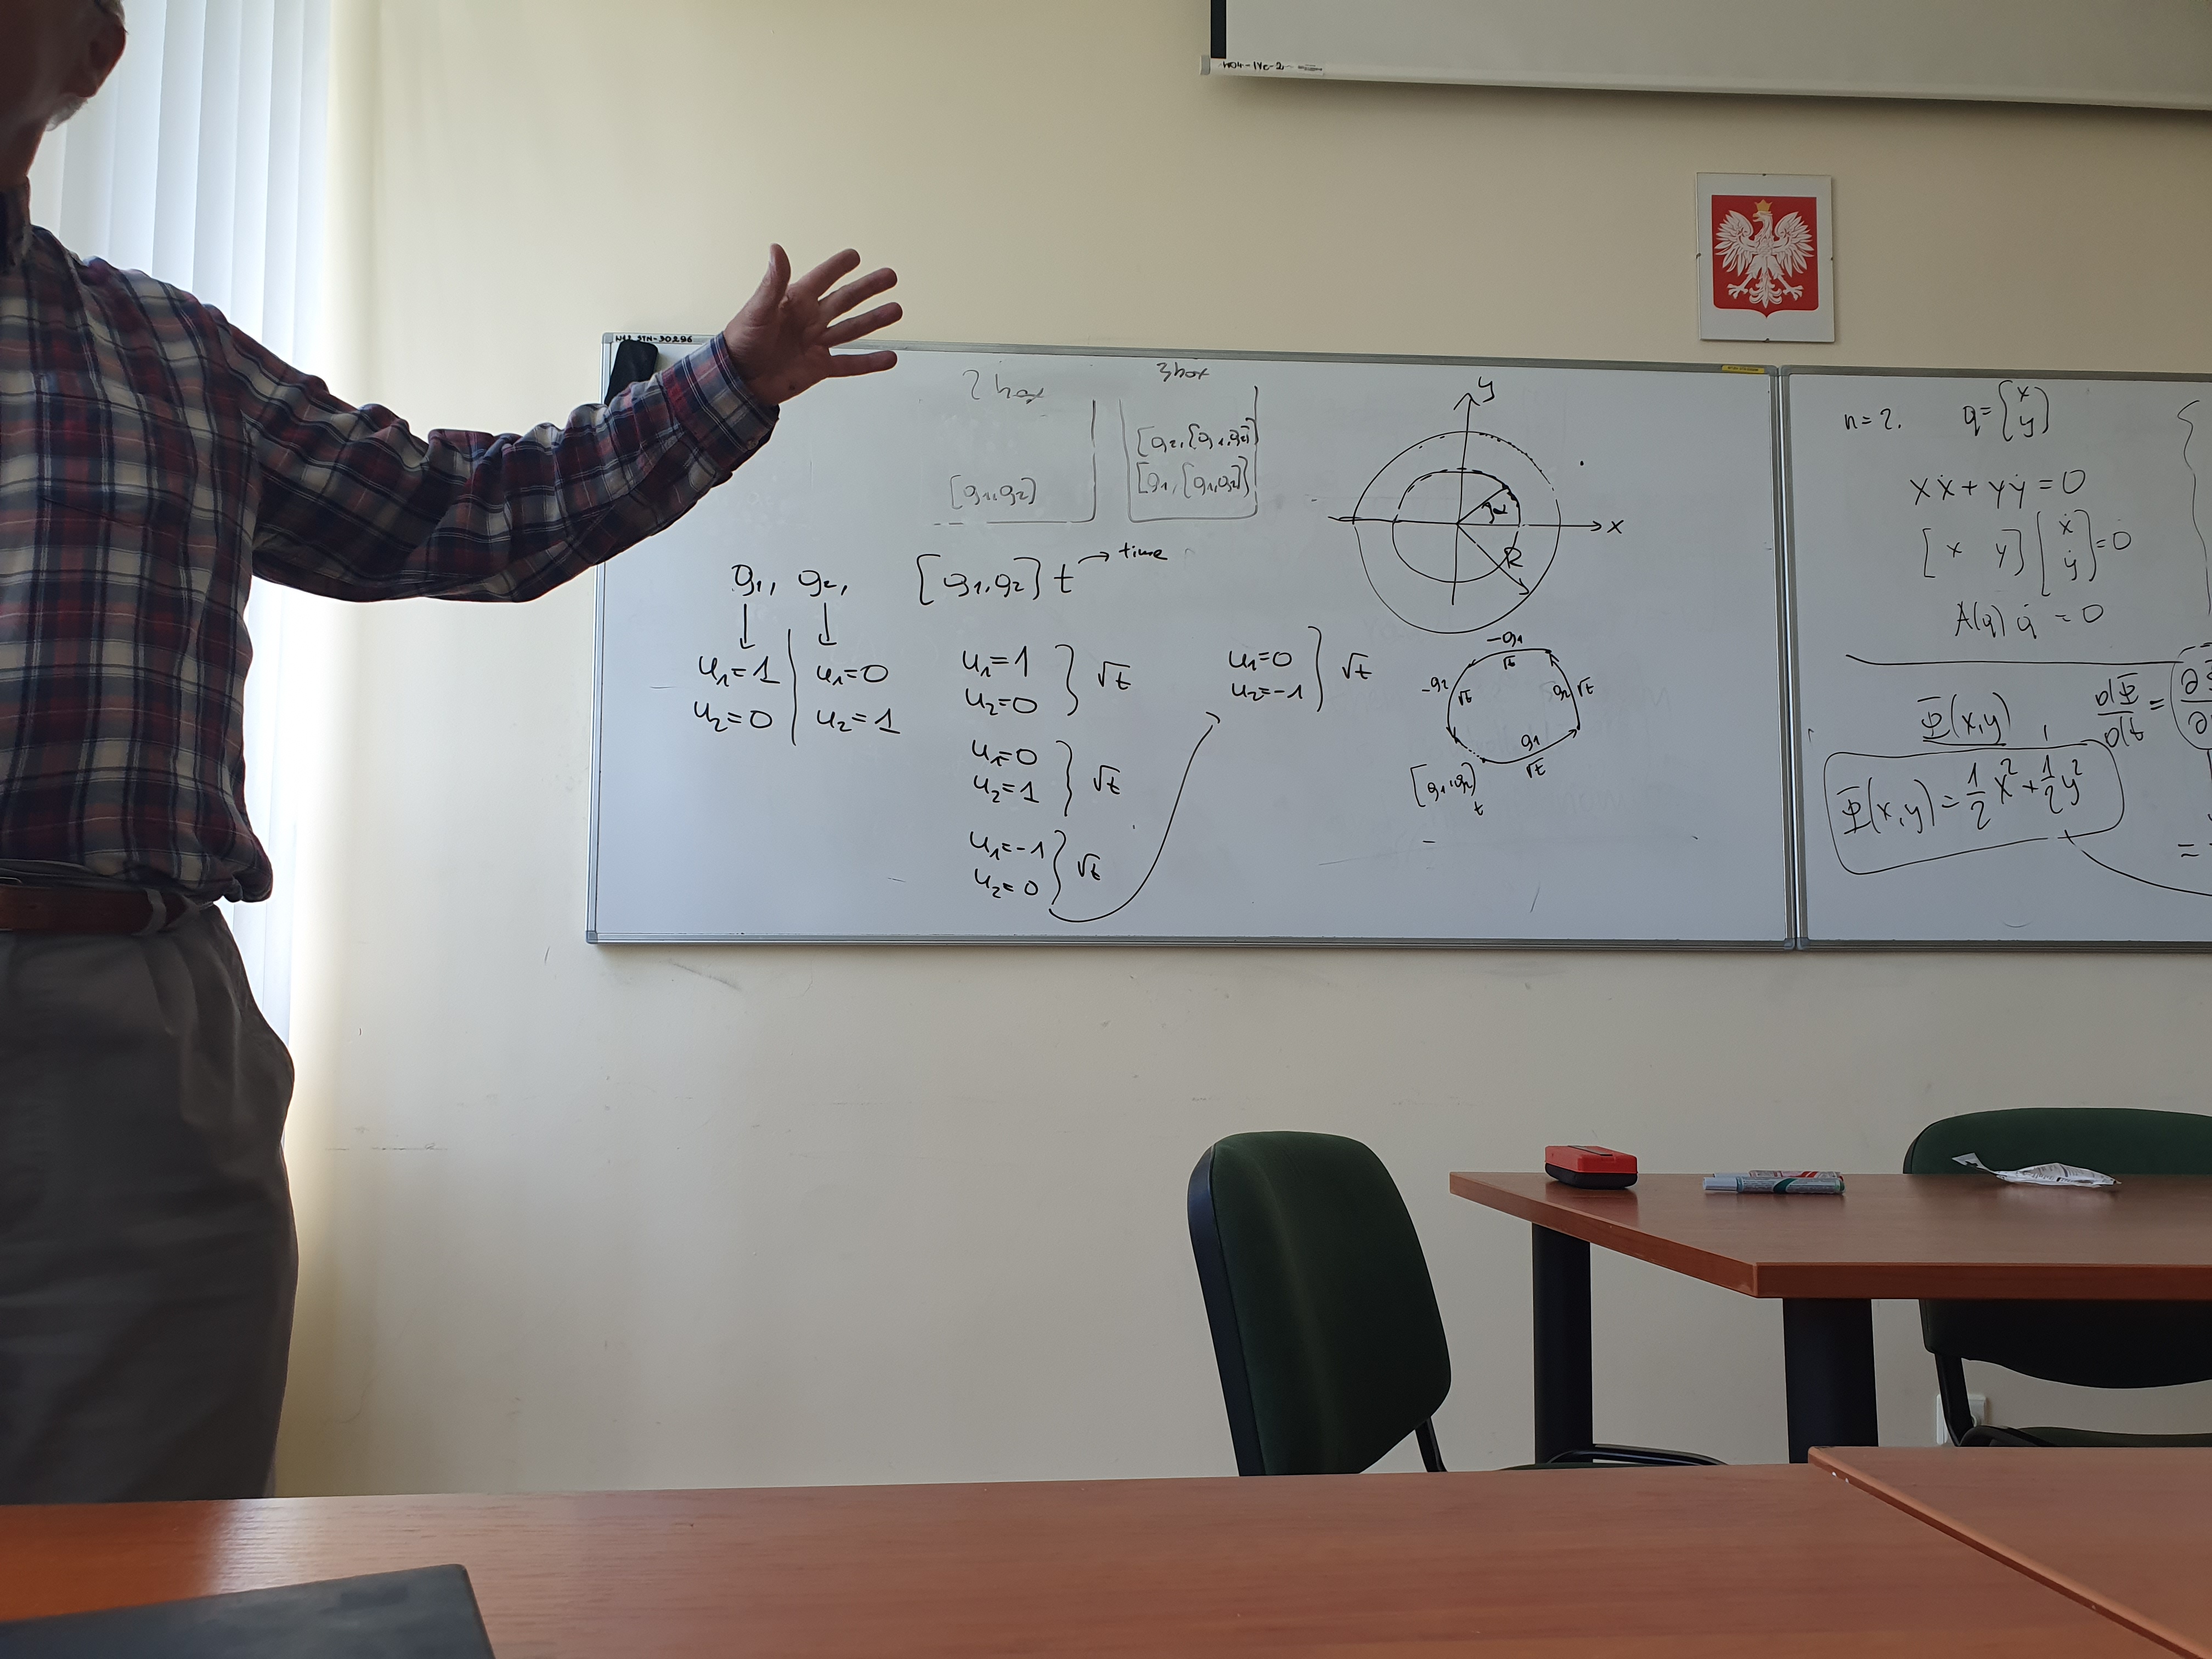 2 box
3 box
[g₂,[g₁,g₂]]
[g₁,g₂]
[g₁,[g₁,g₂]]
g₁, g₂, [g₁,g₂] t → time
u₁=1 | u₁=0
u₂=0 | u₂=1
u₁=1
u₂=0 } √t
u₁=0
u₂=1 } √t
u₁=-1
u₂=0 } √t
u₁=0
u₂=-1 } √t
y
x
α
R
-g₁
√t
-g₂ √t
g₂ √t
g₁
√t
[g₁,g₂]
t
n=2. q=[x y]
xẋ+yẏ=0
[x y][ẋ ẏ]=0
A(q) q̇ = 0
Φ(x,y), dΦ/dt =
Φ(x,y)=½x²+½y²
=